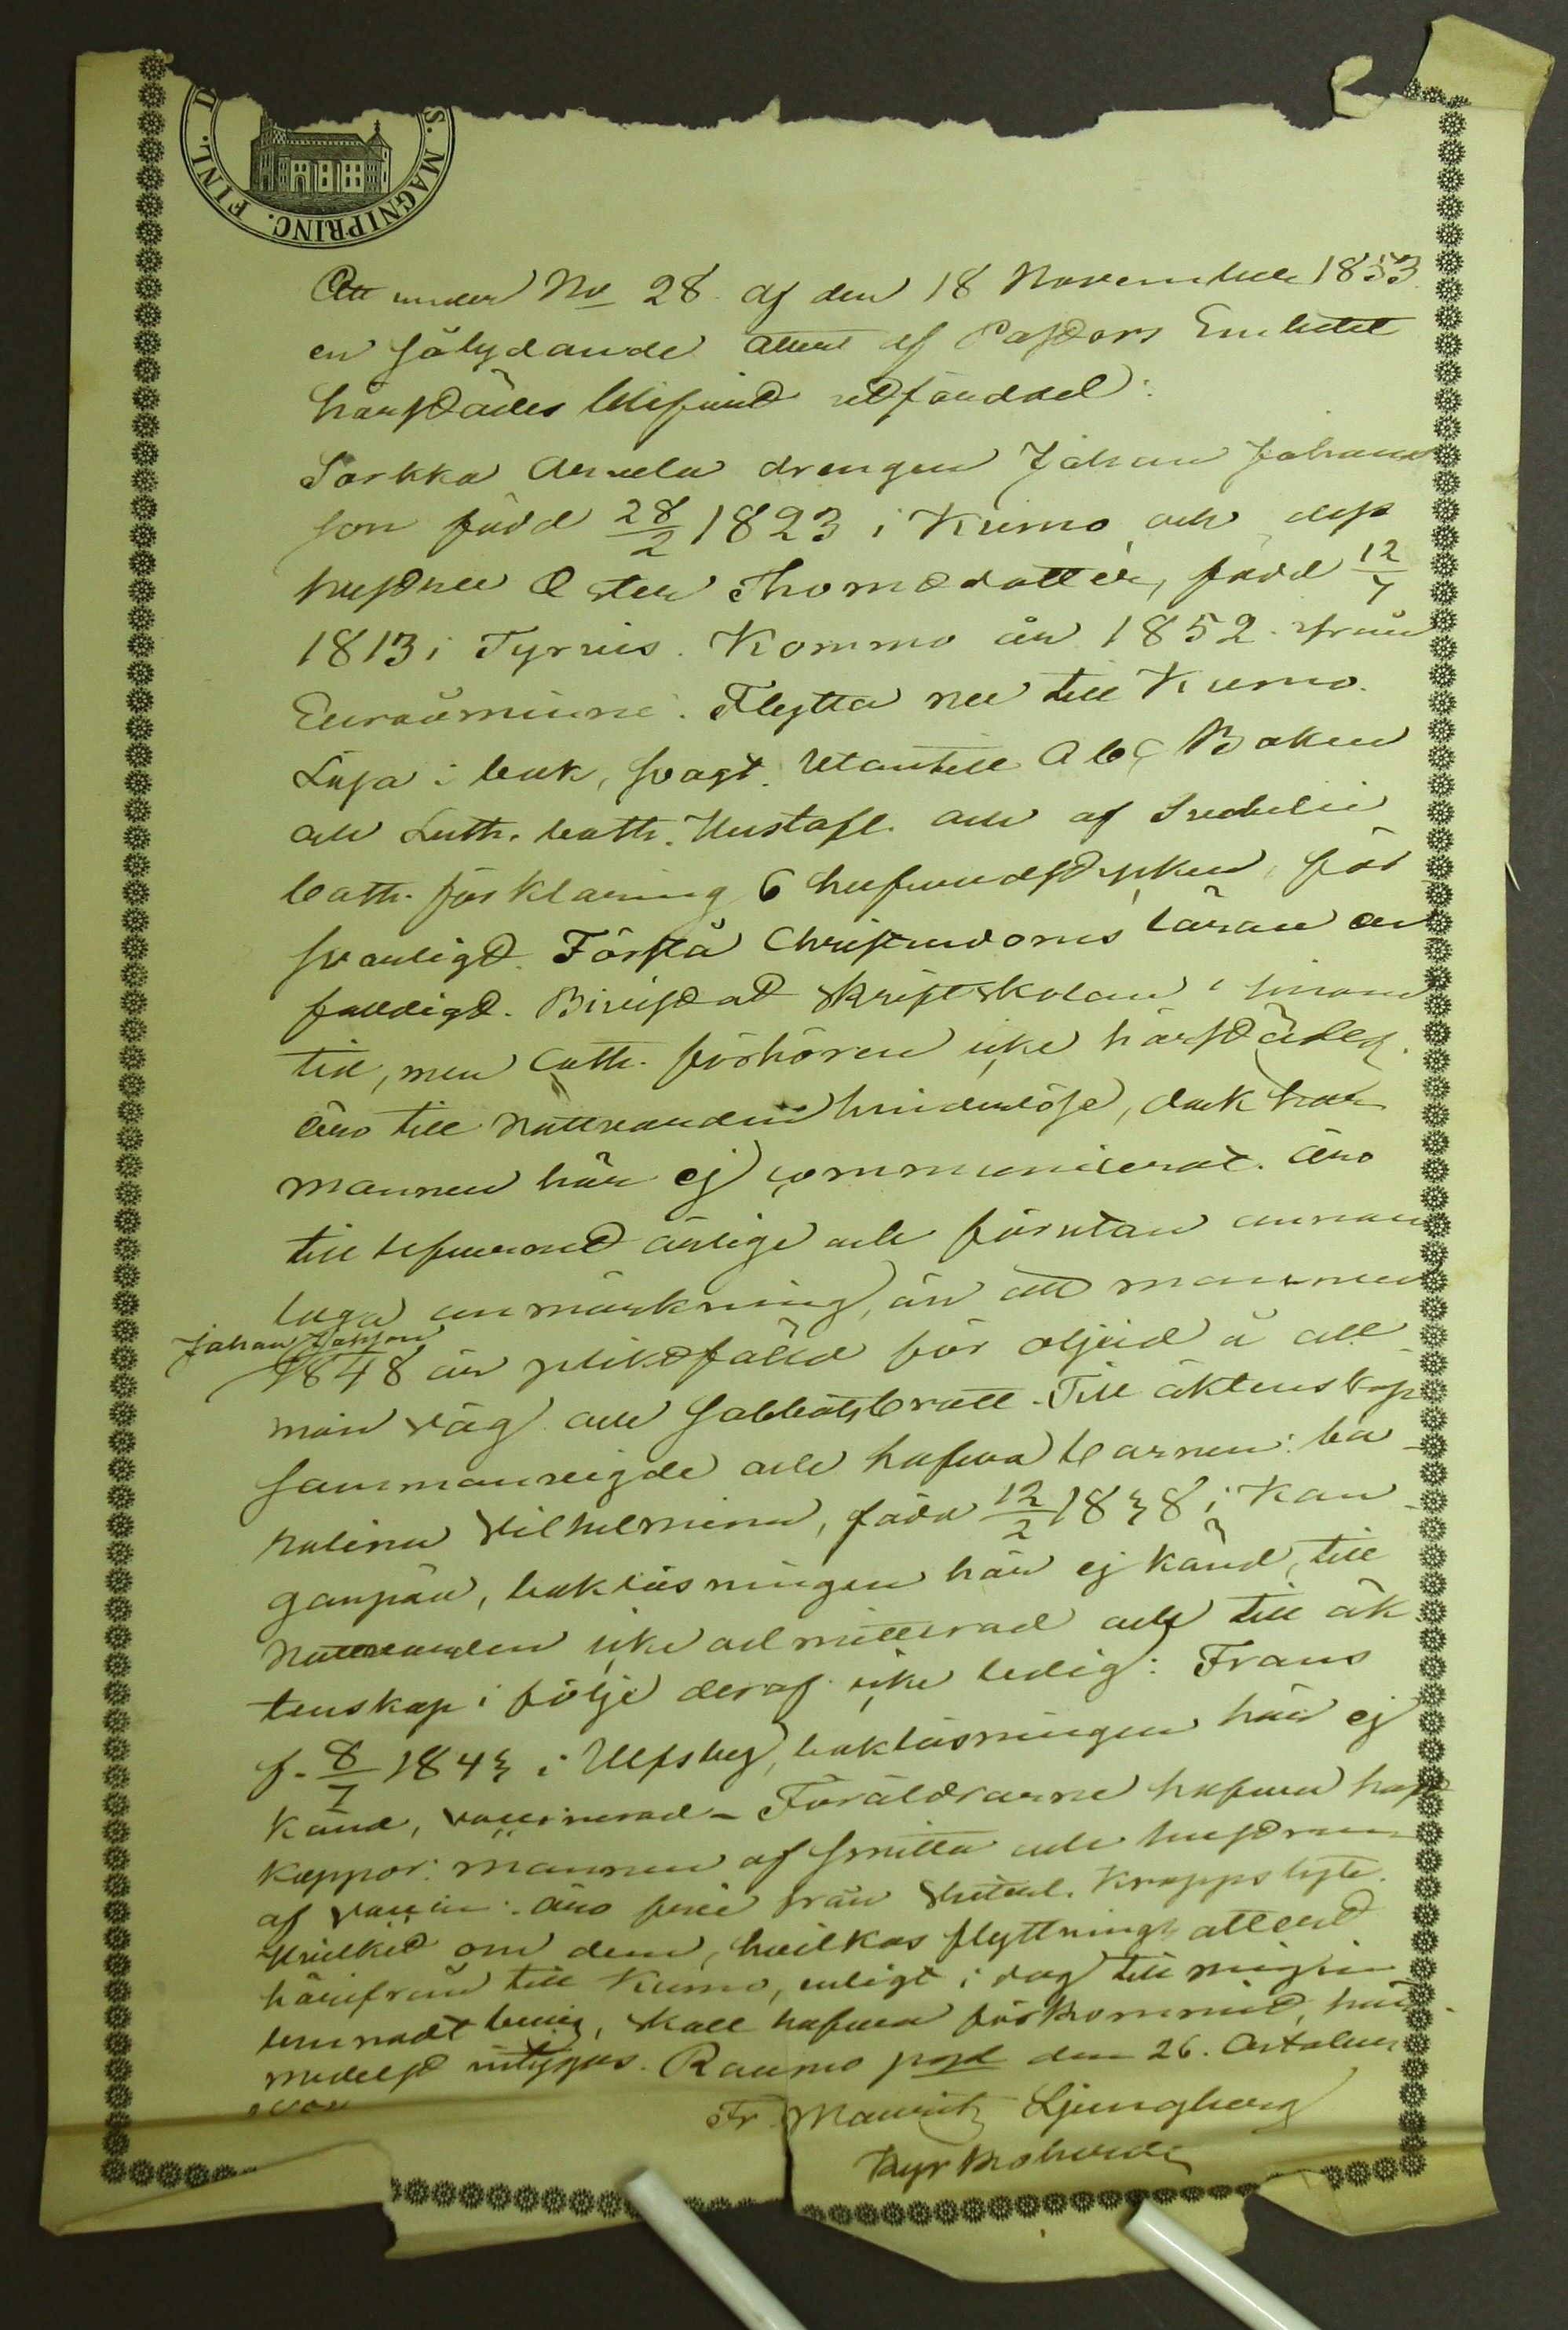 S. MAGNIPRINC. FINL. D
Att under No 28 af den 18 November 1853
en sålydande attest af Pastors Embetet
härstädes blifvit utfärdad:
Sorkka Anuela drengen Johan Johans
son född 28/2 1823 i Kumo och dess
hustru Ester Thomædotter, född 12/7
1813 i Tyrvis. Kommo år 1852 från
Euraåminne. Flytta nu till Kumo.
Läsa i bok, svagt. Utantill Abc Boken
och Luth. Cath. Hustafl. och af Svebelii
Cath. förklaring 6 hufvudstycken, för
svarligt. Förstå Christendoms läran en
faldigt. Bivistat skriftskolan i sinom
tid, men Cath. förhören icke härstädes.
Äro till Nattvarden hinderlöse, dock har
mannen här ej communicerat. Äro
till lefverned ärlige och förutan annan
laga anmärkning, än att mannen
Johan Johansson
1848 är pliktfäld för oljud å all
män väg och Sabbatsbrott. Till äktenskap
sammanvigde och hafva barnen: Ca
halina Vilhelmina, född 12/2 1838 i Kan
ganpää, bokläsningen här ej känd, till
Nattvarden icke admitterad och till äk
tenskap i följe deraf icke ledig: Frans
f. 8/7 1843 i Ulfsby, bokläsningen här ej
känd, vaccinerad – Föräldrarne hafva haft
koppor: mannen af smitta och hustrun
af vaccin: äro frie från lyte.
Hvilket om dem, hvilkas flyttnings attest
härifrån till Kumo, enligt i dag till mig in
lemnadt bevis, skall hafva förkommit, här
medelst intygas. Raumo psgd den 26. October
Fr. Mauritz Ljungberg
Kyrkoherde